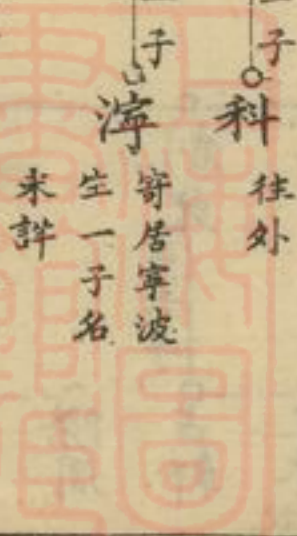 子
科
往外
子
濘
寄居寧波
生一子名
未詳